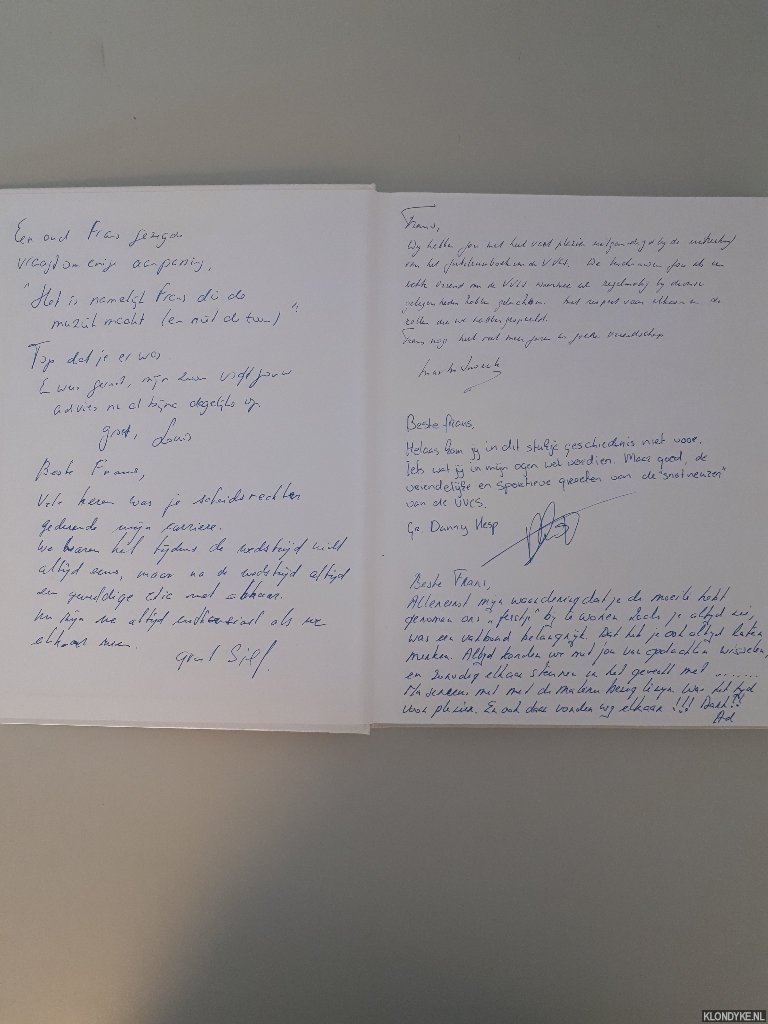 Een oud Frans gezegde
vraagt om enige aanpassing,
"Het is namelijk Frans die de
muziek maakt (en niet de toon)"
Top dat je er was
mijn zoon volgt jouw
advies nu al bijna dagelijks op
groet, Louis
Beste Frans,
Vele keren was je scheidsrechter
gedurende mijn carriere.
We waren het tijdens de wedstrijd niet
altijd eens, maar na de wedstrijd altijd
een geweldige clic met elkaar.
We zijn we altijd enthousiast als we
elkaar zien.
groet Sjef.
Frans,
Wij hebben jou met heel veel plezier uitgenodigd bij de uitreiking
van het jubileumboek van de VVCS. We beschouwen jou als een
echte vriend van de VVCS waarmee we regelmatig bij diverse
gelegenheden hebben gesproken. Met respect voor elkaar en de
rollen die we hebben gespeeld.
Frans nog heel veel mooie jaren in goede vriendschap
Beste Frans,
Helaas kom jij in dit stukje geschiedenis niet voor.
Iets wat jij in mijn ogen wel verdien. Maar goed, de
vriendelijke en sportieve groeten van de "snotneuzen"
van de VVCS.
Gr Danny Hesp
Beste Frans,
Allereerst mijn waardering dat je de moeite hebt
genomen ons "feestje" bij te wonen. Zoals je altijd zei,
was een vakbond belangrijk. Dat heb je ook altijd laten
merken. Altijd konden we met jou van gedachten wisselen,
en zonodig elkaar steunen in het gevecht met .......
Na serieus met met de materie bezig zijn was het tijd
voor plezier. En ook daar vonden wij elkaar!!! Dank!!
Ad
KLONDYKE.NL